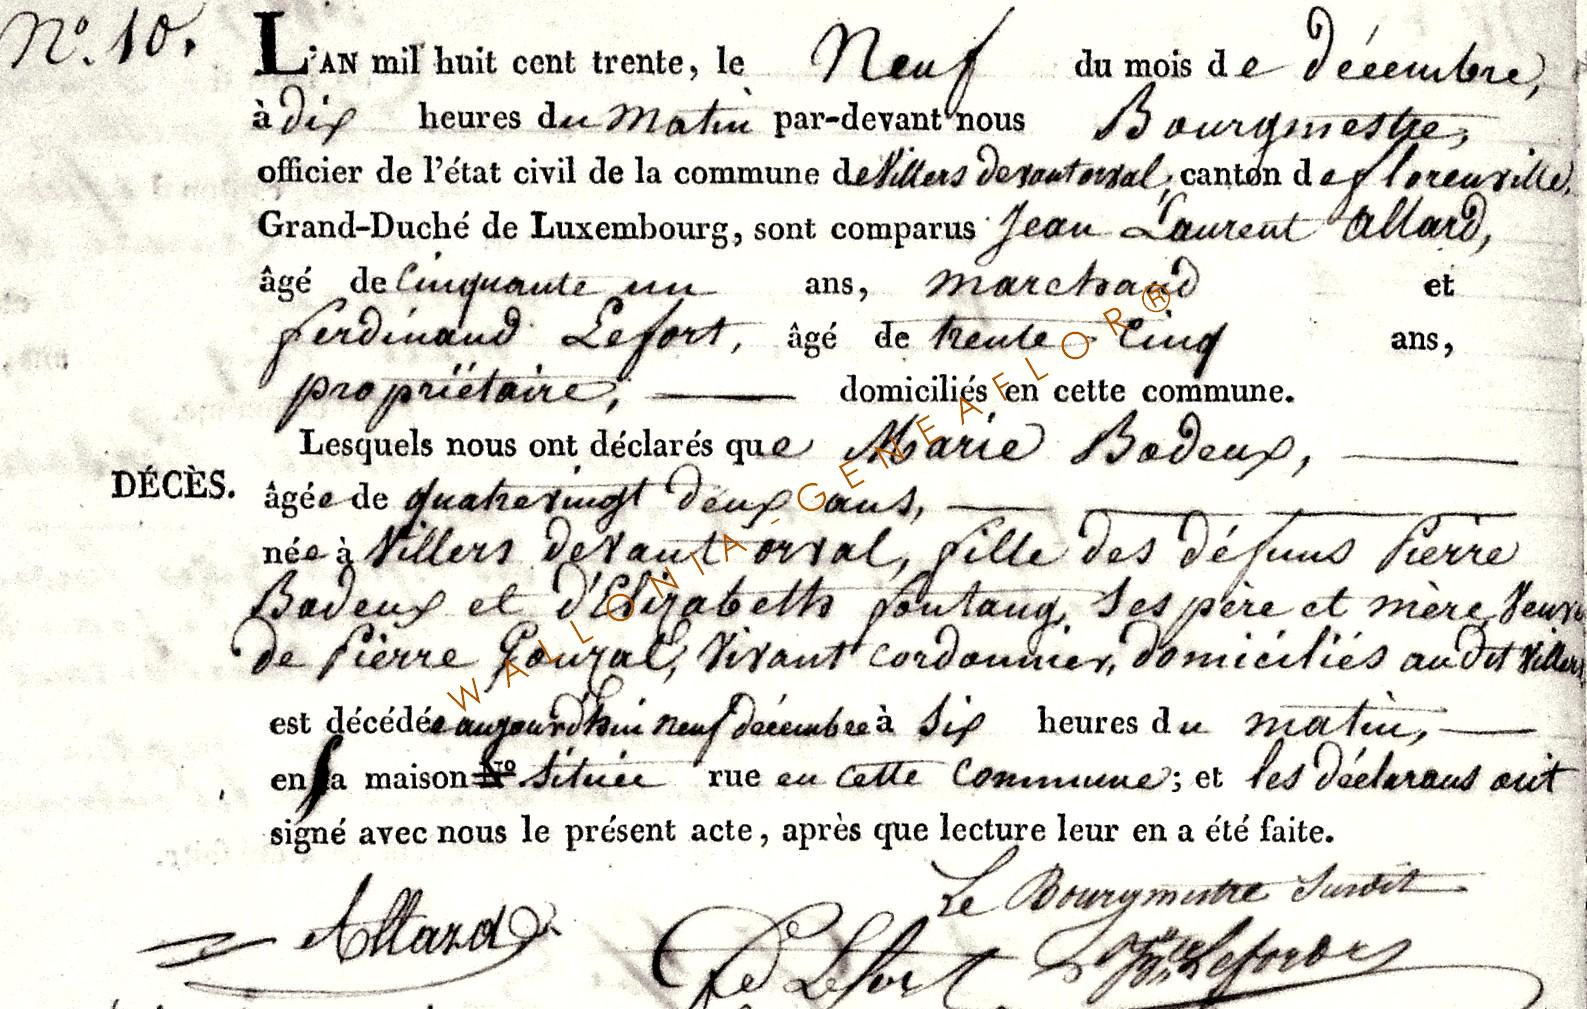 N.º 10.
L'AN mil huit cent trente, le Neuf du mois de décembre,
à dix heures du matin par-devant nous Bourgmestre,
officier de l'état civil de la commune de Villers devant orval, canton de florenville,
Grand-Duché de Luxembourg, sont comparus Jean Laurent Allard,
âgé de Cinquante un ans, marchand et
ferdinand Lefort, âgé de trente Cinq ans,
propriétaire, domiciliés en cette commune.
Lesquels nous ont déclarés que Marie Bodeux,
DÉCÈS.
âgée de quatrevingt deux ans,
née à Villers devant orval, fille des défuns Pierre
Bodeux et d'Elizabeth fontang, Ses père et mère, Veuve
de Pierre, Vivant cordonnier, domiciliés audit Villers
est décédée aujourd'hui neuf décembre à Six heures du matin,
en sa maison Nº Située rue en cette Commune; et les déclarans ont
signé avec nous le présent acte, après que lecture leur en a été faite.
Le Bourgmestre Susdit
Allard
Lefort
WALLONIA-GENEAFLOR®